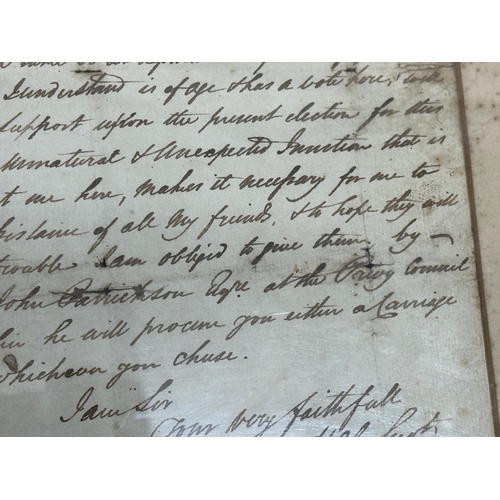 I understand is of age & has a vote here, to ask
support upon the present election for this
Unnatural & Unexpected Junction that is
me here, Makes it necessary for me to
of all My friends, & to hope they will
trouble I am obligd to give them, by —
John Esqre at the Privy Council
he will procure you either a Carriage
whichever you chuse.
I am Sir
Your Very faithfull